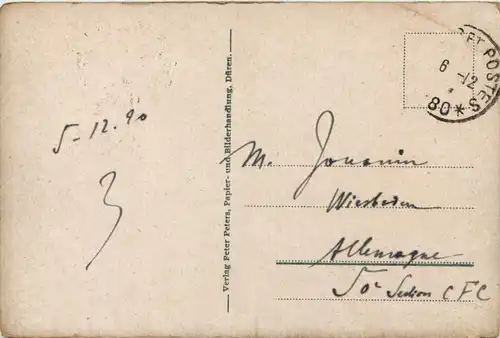 ET POSTES
6 -12
80*
5-12.90
Verlag Peter Peters, Papier- und Bilderhandlung, Düren.
M. Jouanin
Wiesbaden
Allemagne
50e Section CFC